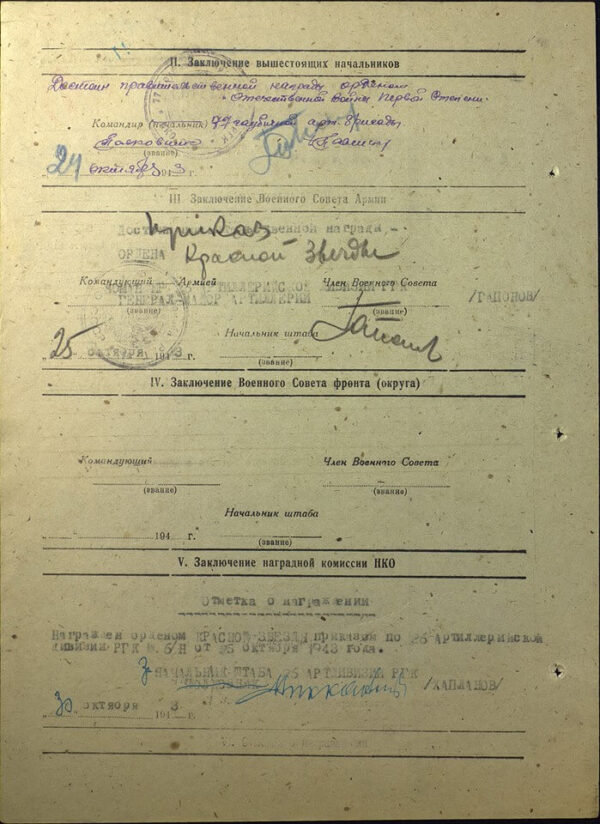 II. Заключение вышестоящих начальников
Достоин правительственной награды орденом
Отечественной войны Первой Степени.
Командир (начальник) гаубичной арт. бригады
(звание)
24 октября 1943 г.
III Заключение Военного Совета Армии
приказ
ОРДЕНА Красной Звезды
Командующий Армией Член Военного Совета
ГЕНЕРАЛ-МАЙОР АРТИЛЛЕРИИ /ГАПОНОВ/
(звание) (звание)
Начальник штаба
25 октября 1943 г.
(звание)
IV. Заключение Военного Совета фронта (округа)
Командующий Член Военного Совета
(звание) (звание)
Начальник штаба
194 г.
(звание)
V. Заключение наградной комиссии НКО
Отметка о награждении
Награжден орденом КРАСНОЙ ЗВЕЗДЫ приказом по 26 Артиллерийской
дивизии РГК №. б/н от 25 октября 1943 года.
НАЧАЛЬНИК ШТАБА 26 АРТДИВИЗИИ РГК
/КАПЛАНОВ/
30 октября 1943 г.